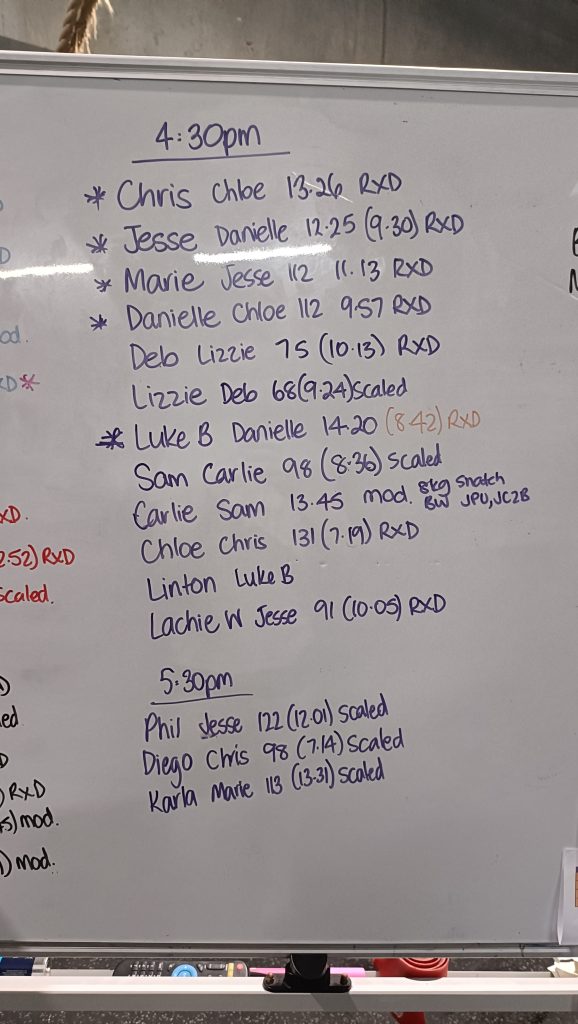 4:30pm
* Chris Chloe 13.26 RXD
* Jesse Danielle 12.25 (9.30) RXD
* Marie Jesse 112 11.13 RXD
* Danielle Chloe 112 9.57 RXD
Deb Lizzie 75 (10.13) RXD
Lizzie Deb 68 (9.24) Scaled
* Luke B Danielle 14.20 (8.42) RXD
Sam Carlie 98 (8.36) Scaled
Carlie Sam 13.45 mod. 8kg Snatch
BW JPU, JC2B
Chloe Chris 131 (7.19) RXD
Linton Luke B
Lachie W Jesse 91 (10.05) RXD
5.30pm
Phil Jesse 122 (12.01) Scaled
Diego Chris 98 (7.14) Scaled
Karla Marie 113 (13.31) Scaled
D
od.
XD*
XD.
2.52) RXD
Scaled.
ed
D
) RXD
5) mod.
) mod.